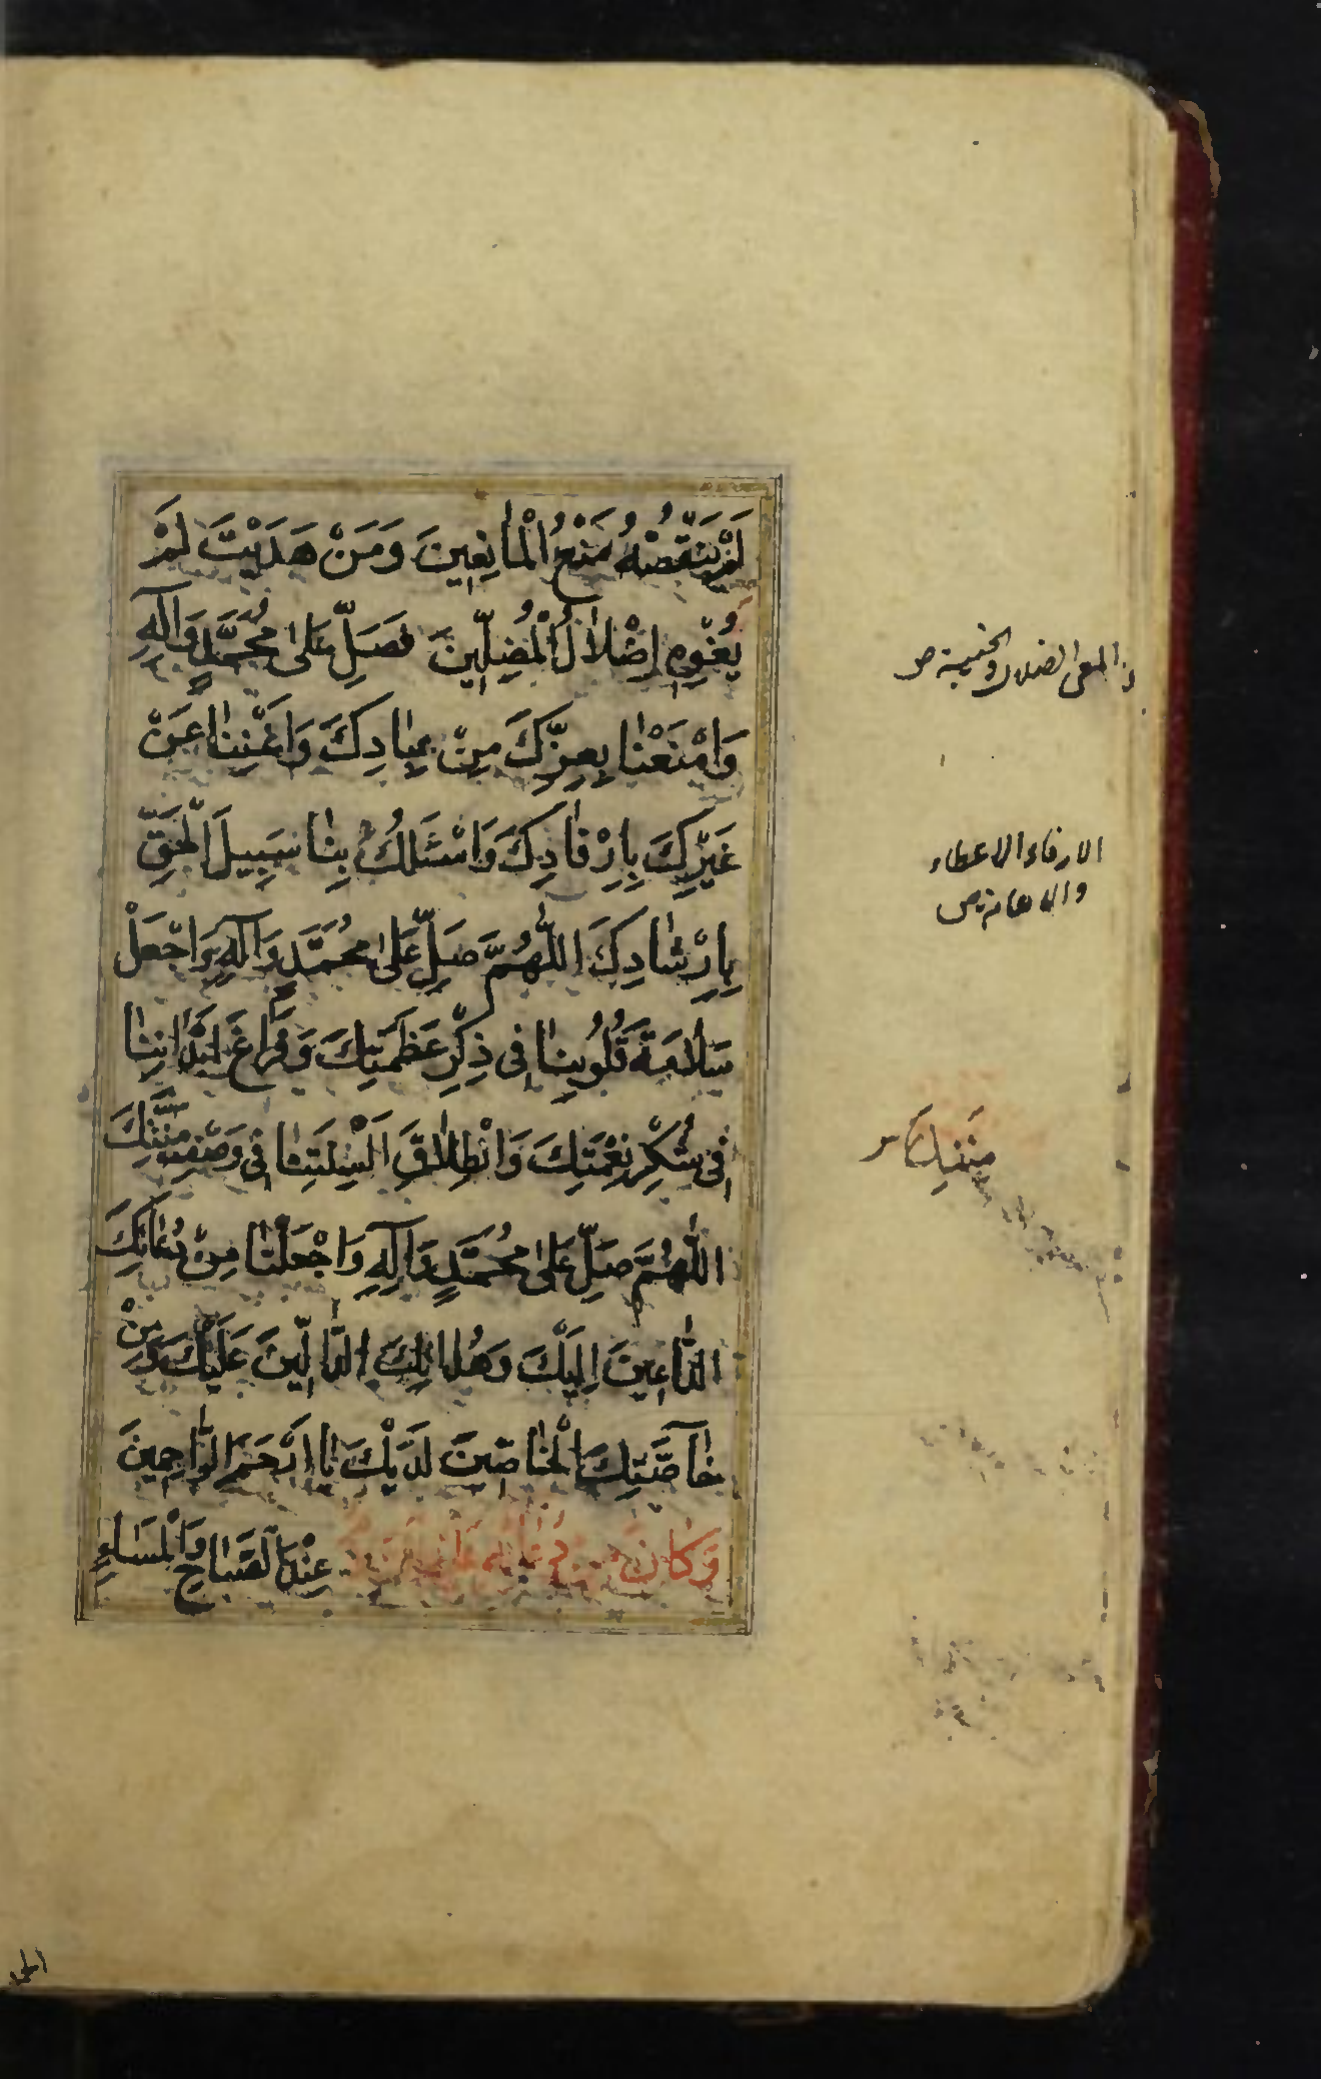 لَمْ يَنْقُصْهُ مَنْعُ الْمانِعِينَ وَمَنْ هَدَيْتَ لَمْ
يُغْوِهِ إِضْلالُ الْمُضِلِّينَ فَصَلِّ عَلىٰ مُحَمَّدٍ وَآلِهِ
وَامْنَعْنا بِعِزِّكَ مِنْ عِبادِكَ وَاَغْنِنا عَنْ
غَيْرِكَ بِاِرْفادِكَ وَاسْئَلُكْ بِنا سَبِيلَ الْحَقِّ
بِاِرْشادِكَ اللّٰهُمَّ صَلِّ عَلىٰ مُحَمَّدٍ وَآلِهِ وَاجْعَلْ
سَلامَةَ قُلُوبِنا فِى ذِكْرِ عَظَمَتِكَ وَفَراغَ اَبْدانِنا
فِى شُكْرِ نِعْمَتِكَ وَانْطِلاقَ اَلْسِنَتِنا فِى وَصْفِ مِنَّتِكَ
اللّٰهُمَّ صَلِّ عَلىٰ مُحَمَّدٍ وَآلِهِ وَاجْعَلْنا مِنْ دُعاتِكَ
الدّاعِينَ اِلَيْكَ وَهُداتِكَ الدّالِّينَ عَلَيْكَ وَمِنْ
خاصَّتِكَ الْخاصِّينَ لَدَيْكَ يا اَرْحَمَ الرّاحِمِينَ
وَكانَ مِنْ دُعائِهِ عَلَيْهِ السَّلامُ عِنْدَ الصَّباحِ وَالْمَساءِ
الغي الضلال والخيبة ص
الارفاد الاعطاء
والاعانة ص
مِنَنِكَ س
الحمد